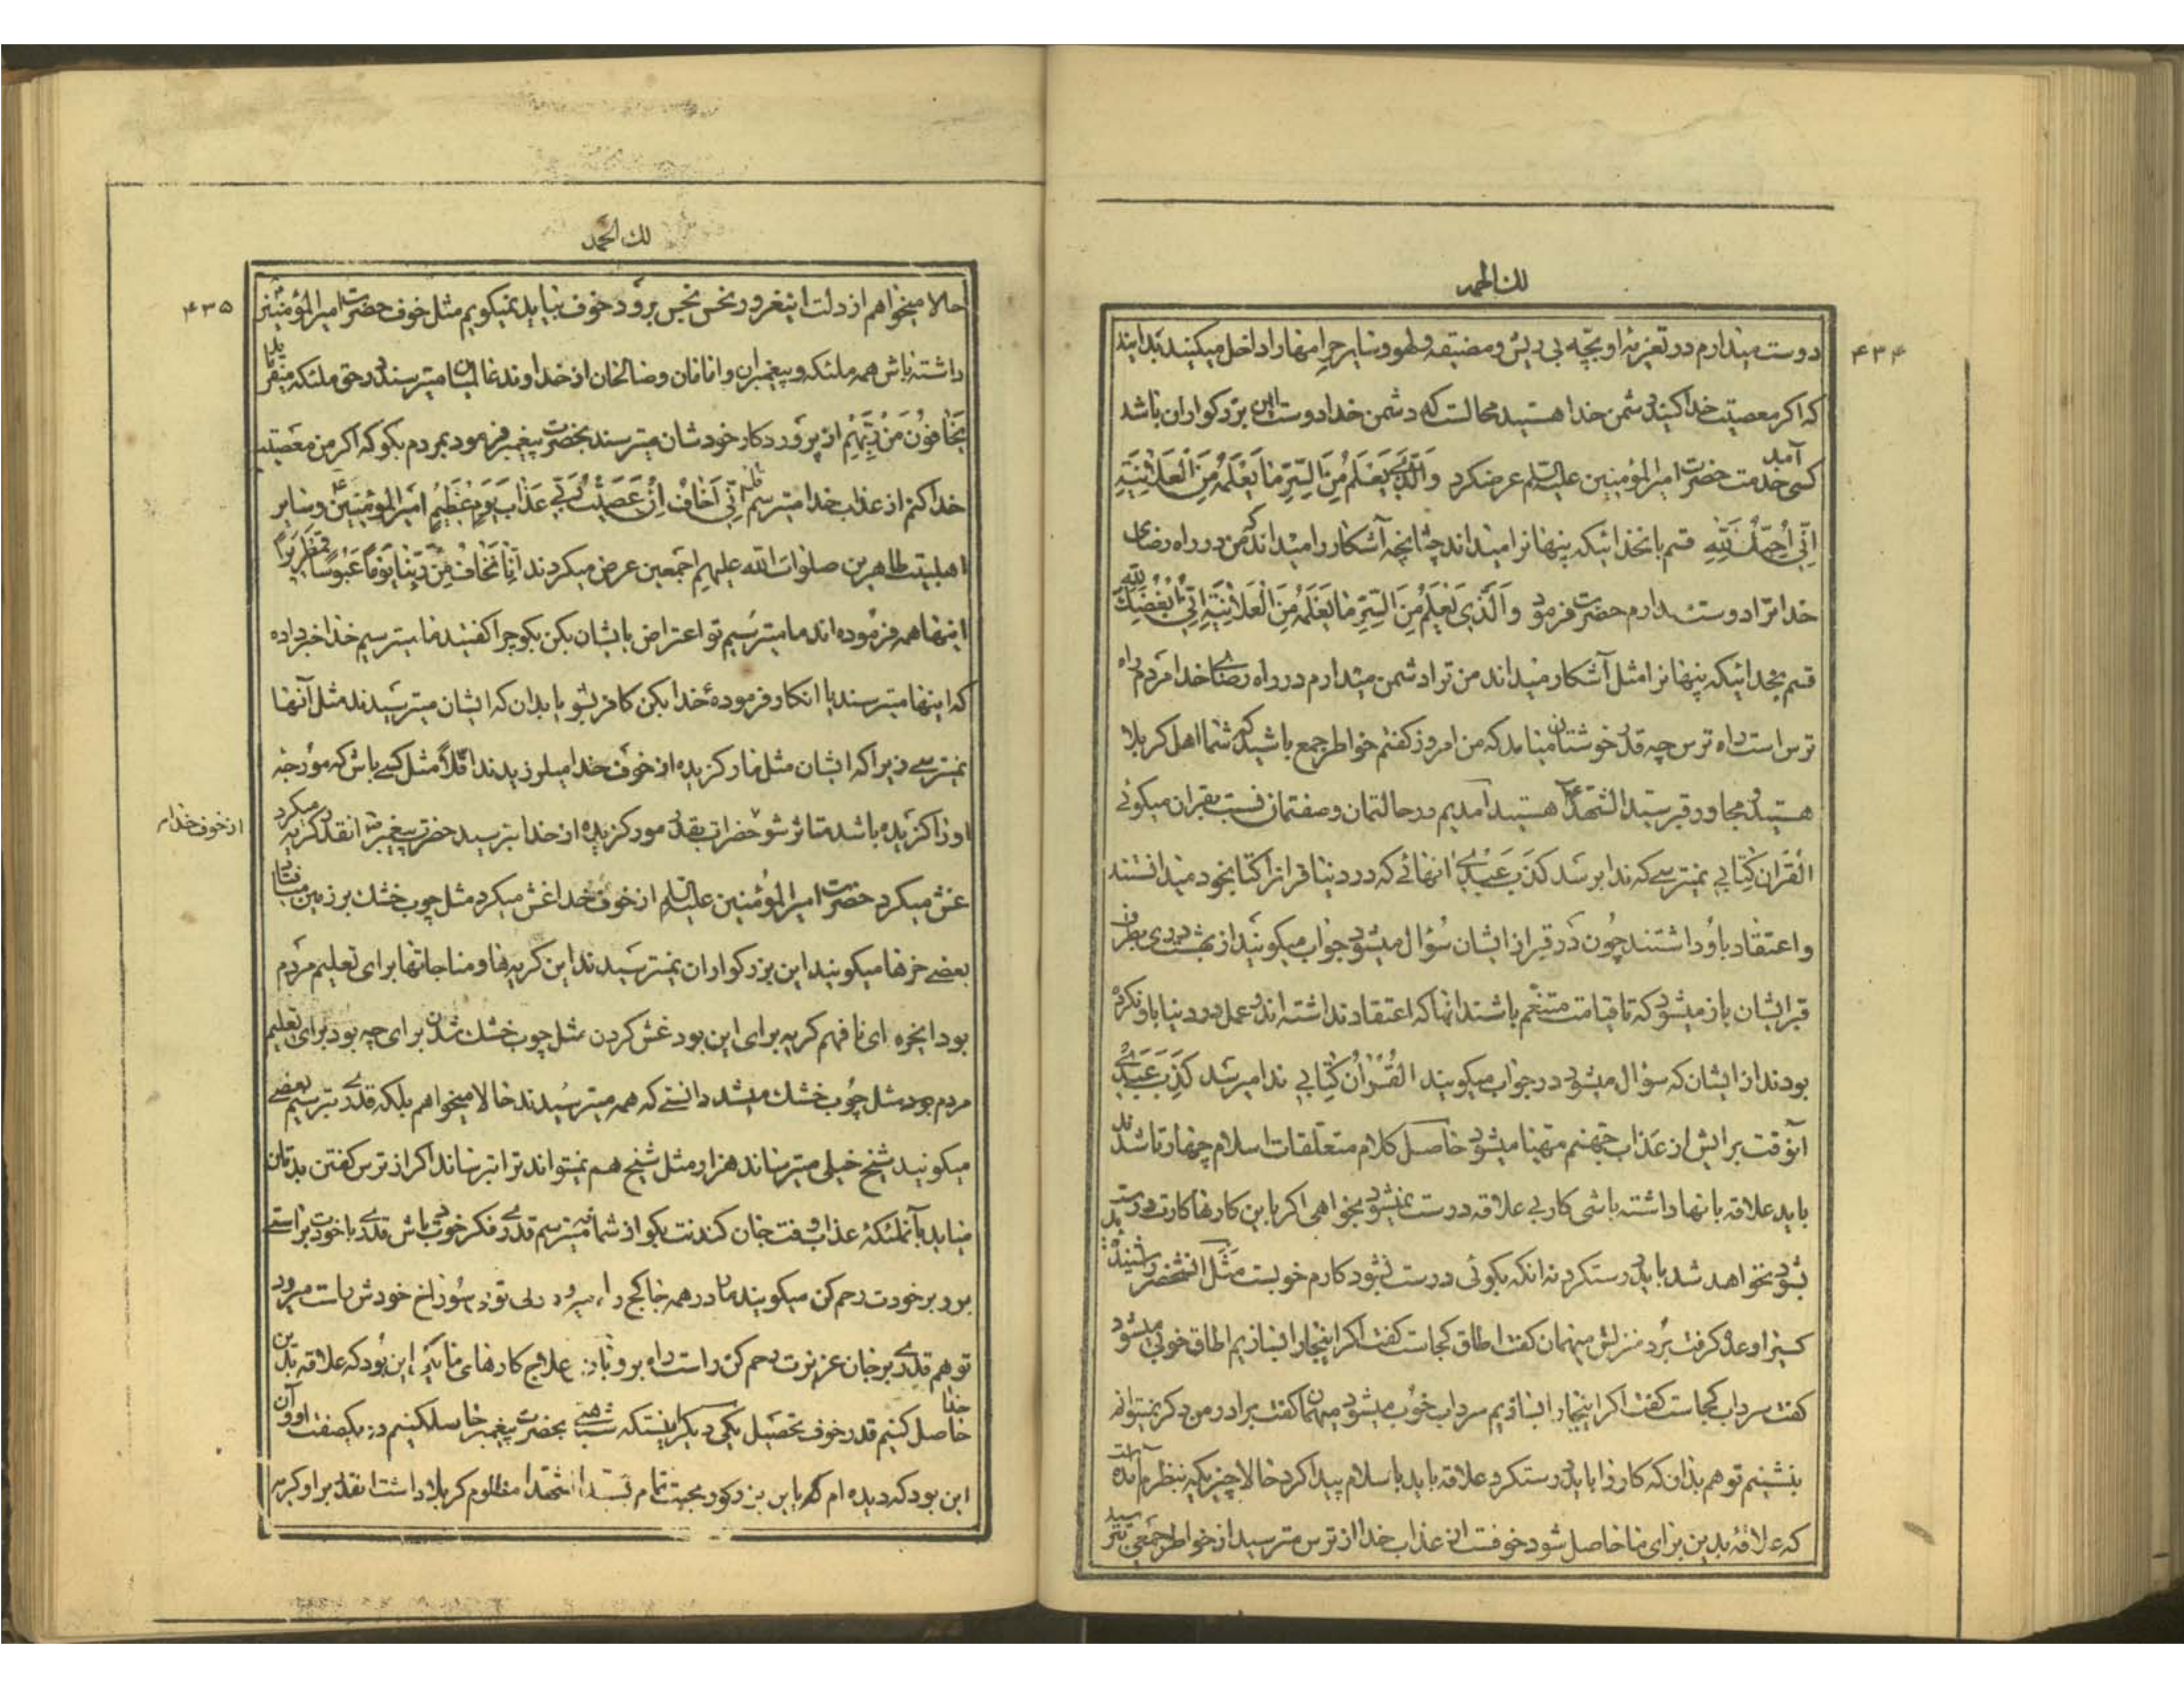 لك الحمد
۴۳۴
دوست میدارم در تعزیه او بچه بی ریش و مضیقه و لهو و سایر حرامها را داخل میکنید بدانید
که اگر معصیت خدا کنید دشمن خدا هستید محالست که دشمن خدا دوست این بزرگواران باشد
کسی آمد خدمت حضرت امیرالمؤمنین علیه السلام عرضکرد وَالَّذی یَعْلَمُ مِنَ السِّرِّ مَا یَعْلَمُهُ مِنَ الْعَلانِیَةِ
اِنّی اُحِبُّكَ لِلّٰهِ قسم بانخدائیکه پنهانرا میداند چنانچه آشکار را میداند که من در راه رضای
خدا ترا دوست میدارم حضرت فرمود وَالَّذی یَعْلَمُ مِنَ السِّرِّ مَا یَعْلَمُهُ مِنَ الْعَلانِیَةِ اِنّی اُبْغِضُكَ لِلّٰه
قسم بخدائیکه پنهانرا مثل آشکار میداند من ترا دشمن میدارم در راه رضای خدا مردم راه
ترس است راه ترس چه قدر خوشتان میامد که من امروز گفتم خواطر جمع باشید که شما اهل کربلا
هستید و مجاور قبر سید الشهداء هستید آمدیم در حالتمان و صفتمان نسبت بقران میگوئی
الْقُرانُ کِتابی نمیترسی که ندا برسد کَذَبَ عَبْدی انهائی که در دنیا قرانرا کتابخود میدانستند
و اعتقاد باو داشتند چون در قبر از ایشان سؤال میشود جواب میگویند از بهشت دری بطرف
قبر ایشان باز میشود که تا قیامت متنعّم باشند انها که اعتقاد نداشته اند و عمل در دنیا باو نکرده
بودند از ایشان که سؤال میشود در جواب میگویند الْقُرْانُ کِتابی ندا میرسد کَذَبَ عَبْدی
آنوقت برایش از عذاب جهنم مهیا میشود حاصل کلام متعلّقات اسلام چهارتا شدند
باید علاقه بانها داشته باشی کار بی علاقه درست نمیشود بخواهی اگر باین کارها کارت درست
بشود نخواهد شد باید درستکرد نه انکه بگوئی درست بشود کارم خوبست مثل انشخص
کسیرا وعده گرفت برد منزلش میهمان گفت اطاق کجاست گفت اگر اینجا را بسازیم اطاق خوبی میشود
گفت سرداب کجاست گفت اگر اینجا را بسازیم سرداب خوب میشود میهمان گفت برادر من دیگر نمیتوانم
بنشینم تو هم بدان که کار را باید درستکرد علاقه باید باسلام پیدا کرد حالا چیزیکه بنظرم آمده است
که علاقۀ بدین برای ما حاصل شود خوفست از عذاب خدا از ترس مترسید از خواطر جمعی بترسید
لك الحمد
۴۳۵
حالا میخواهم از دلت اینغرور نحس نجس برود خوف بیاید نمیگویم مثل خوف حضرت امیرالمؤمنین
داشته باش همه ملئکه و پیغمبران و امامان و صالحان از خداوند عالمیان میترسند در حق ملئکه میفرماید
یَخافُونَ مِنْ رَبِّهِمْ از پروردکار خودشان میترسند بحضرت پیغمبر فرمود بمردم بگو که اگر من معصیت
خدا کنم از عذاب خدا میترسم قل اِنّی اَخافُ اِنْ عَصَیْتُ رَبّی عَذابَ یَوْمٍ عَظیمٍ امیرالمؤمنین و سایر
اهلبیت طاهرین صلوات الله علیهم اجمعین عرض میکردند اِنّا نَخافُ مِنْ رَبِّنا یَوْماً عَبُوساً قَمْطَریراً
اینها همه فرموده اند ما میترسیم تو اعتراض بایشان بکن بگو چرا گفتید ما میترسیم خدا خبر داده
که اینها میترسند یا انکار فرمودهٔ خدا بکن کافر بشو یا بدان که ایشان میترسیدند مثل آنها
نمیترسی زیرا که ایشان مثل مار گزیده از خوف خدا میلرزیدند اقلاً مثل کسی باش که مورچه
او را گزیده باشد متاثر شو حضرات بقدر مور گزیده از خدا بترسید حضرت پیغمبر انقدر گریه میکرد
از خوف خدا
غش میکرد حضرت امیرالمؤمنین علیه السلام از خوف خدا غش میکرد مثل چوب خشك بر زمین میافتاد
بعضی خرها میگویند این بزرگواران نمیترسیدند این گریه ها و مناجاتها برای تعلیم مردم
بود ایخره ای نافهم گریه برای این بود غش کردن مثل چوب خشك شدن برای چه بود برای تعلیم
مردم بود مثل چوب خشك میشد دانستی که همه میترسیدند حالا میخواهم بلکه قدری بترسیم بعضی
میگویند شیخ خیلی میترساند هزار مثل شیخ هم نمیتواند ترا بترساند اگر از ترس گفتن بدتان
میاید بآنملئکۀ عذاب وقت جان کندنت بگو از شما نمیترسم قدری در فکر خود باش قدری با خودت براستی
برو بر خودت رحم کن میگویند مار در همه جا کج راه میرود ولی تو سوراخ خودش راست میرود
تو هم قدری بر جان عزیزت رحم کن راست راه برو علاج کارهای ما این بود که علاقه بدین
خدا حاصل کنیم قدر خوف تحصیل یکی دیگر اینستکه شباهتی بحضرت پیغمبر حاصلکنیم در یکصفت او و آن
این بود که دیده ام که باین بزرگوار محبت تمام سید الشهداء مظلوم کربلا داشت انقدر بر او گریه